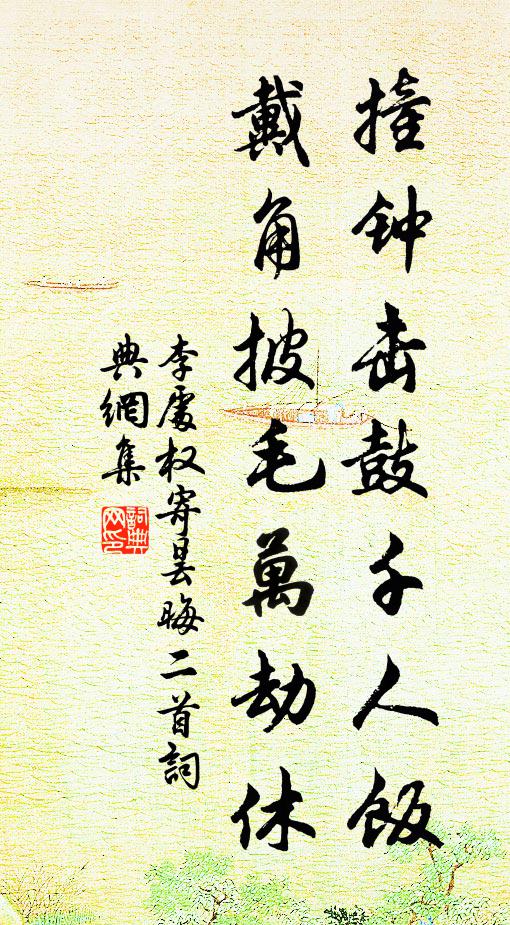 撞钟击鼓千人饭
戴角披毛萬劫休
李處权寄昙晦二首詞
典網集
詞典
网印